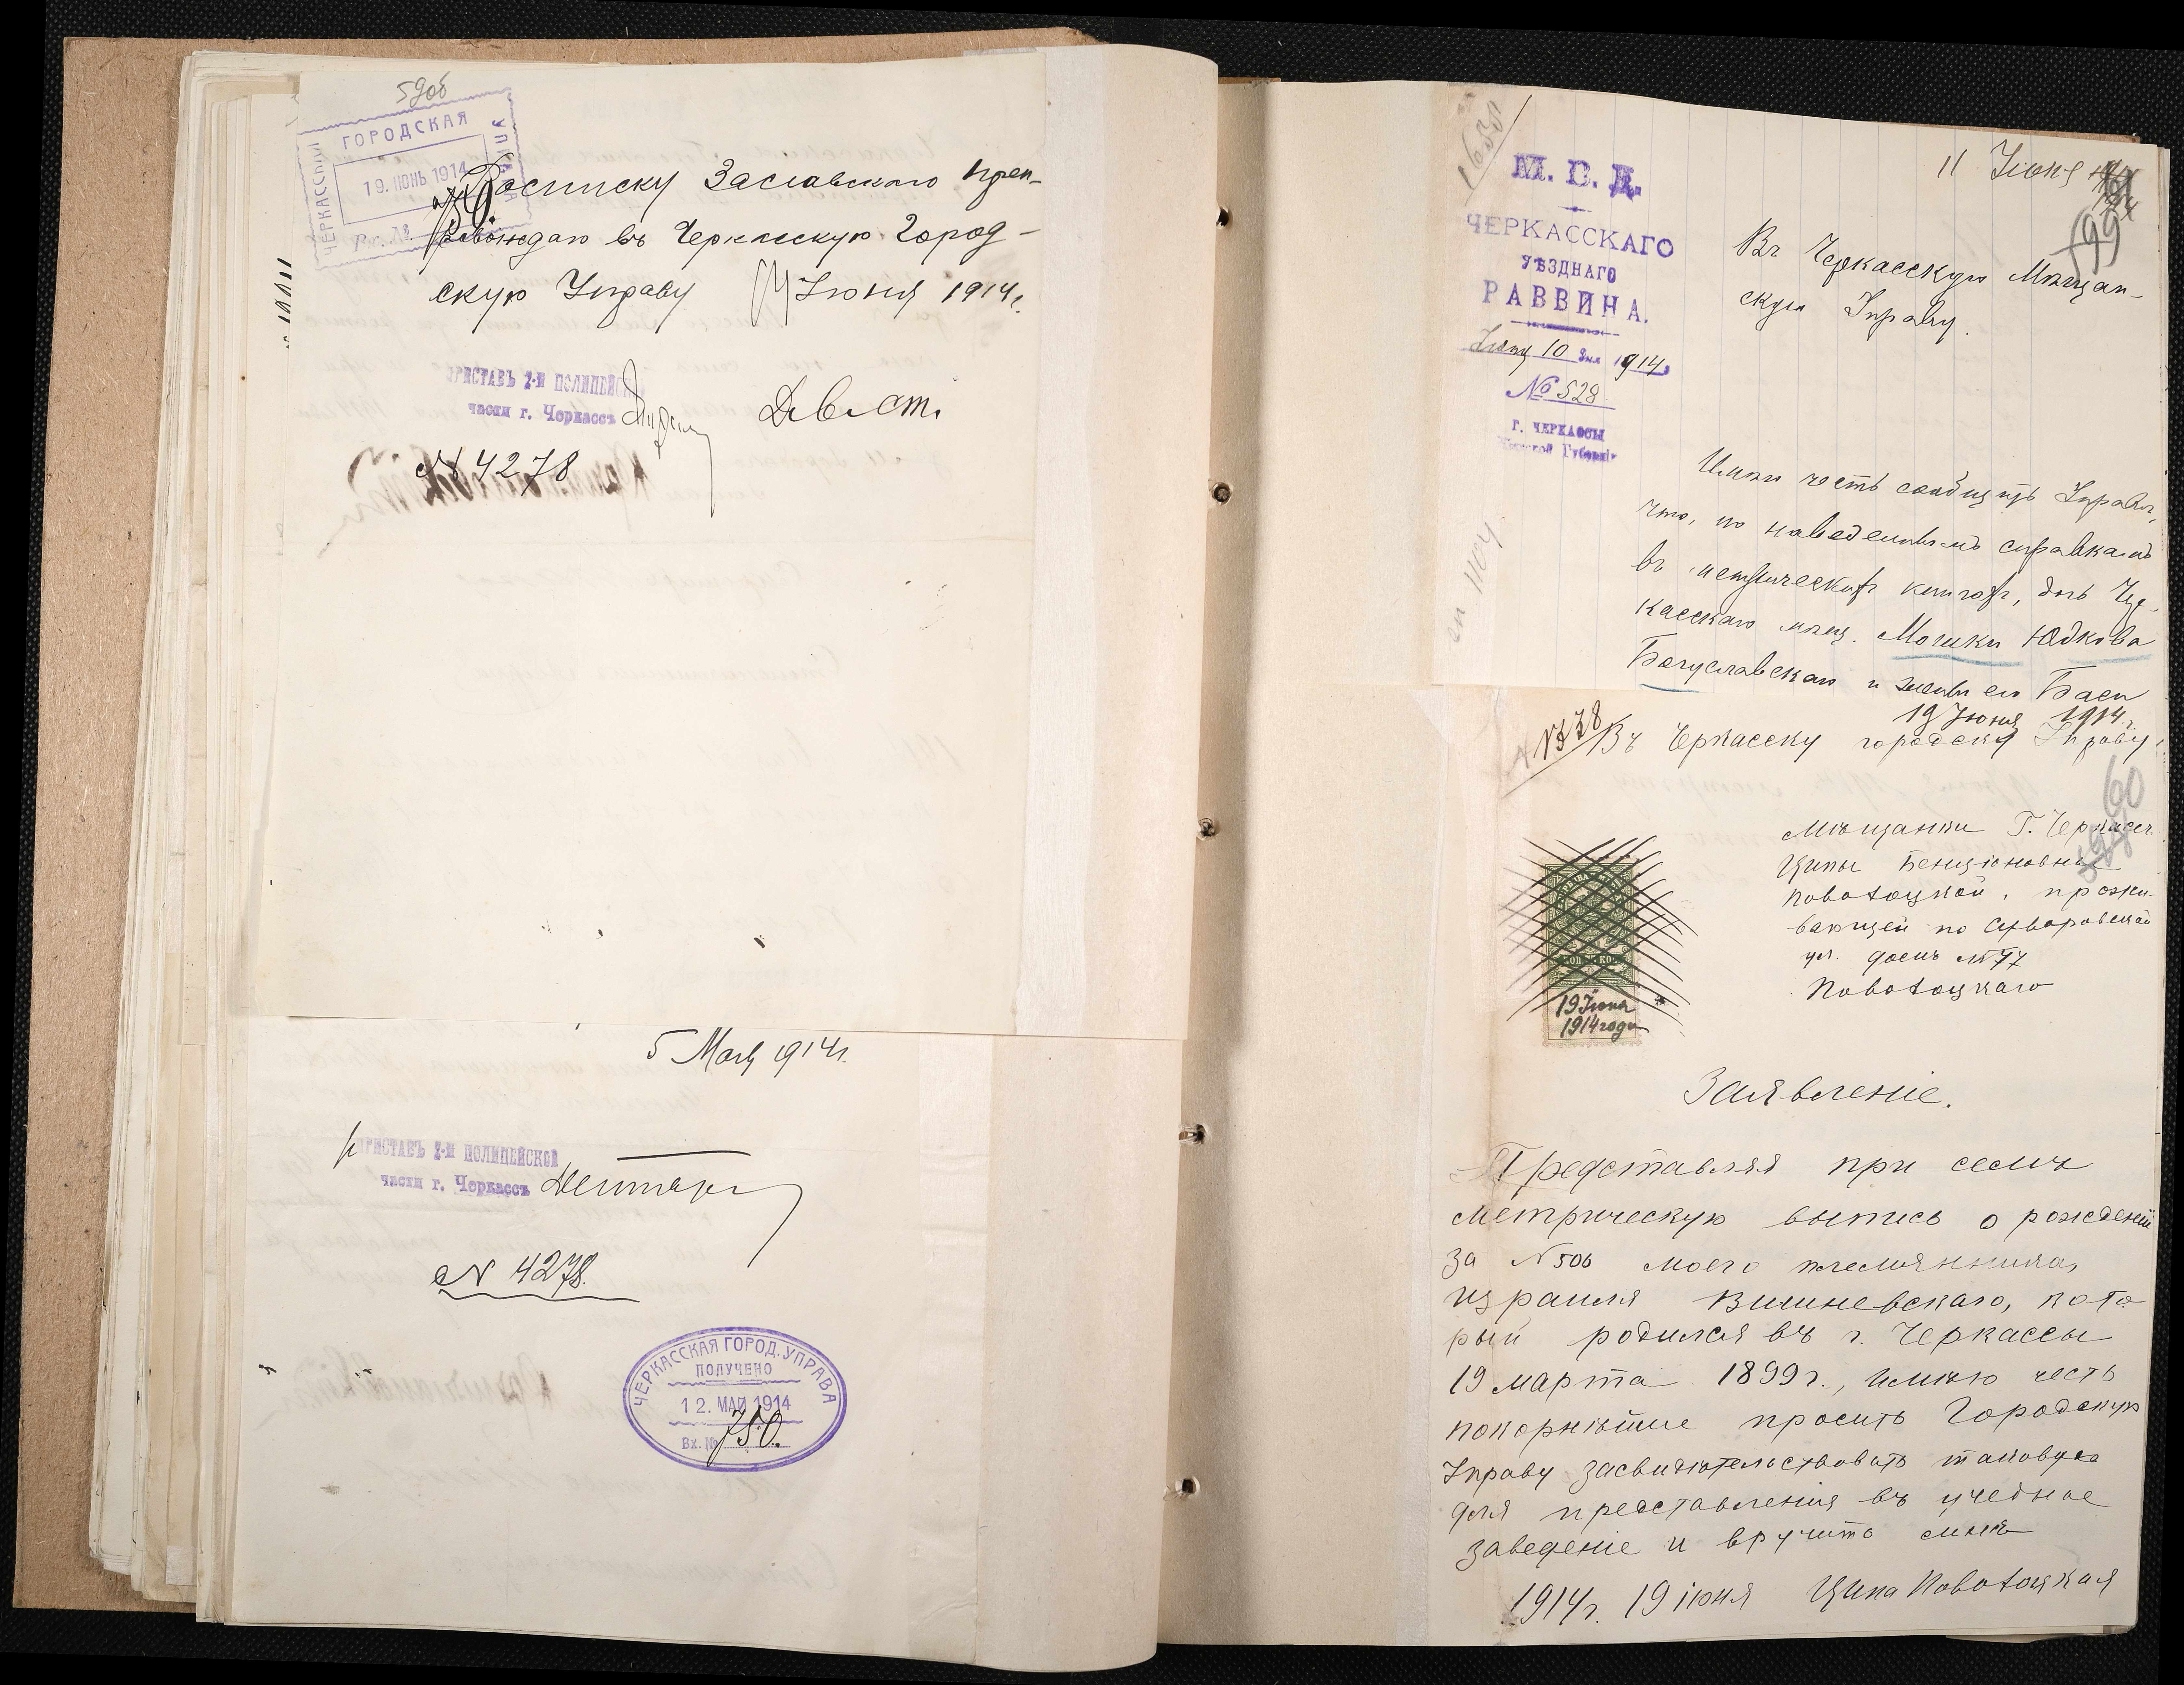 59об
ЧЕРКАССКАЯ ГОРОДСКАЯ УПРАВА
19. ИЮНЬ 1914
Росписку Заславского преп-
ровождаю въ Черкасскую Город-
скую Управу 17 Іюня 1914 г.
ПРИСТАВЪ 2-Й ПОЛИЦЕЙСКОЙ
части г. Черкассъ
№ 4278
5 Маія 1914 г.
ПРИСТАВЪ 2-Й ПОЛИЦЕЙСКОЙ
части г. Черкассъ
№ 4278.
ЧЕРКАССКАЯ ГОРОД. УПРАВА
ПОЛУЧЕНО
12. МАЙ 1914
Вх. № 750.
М. В. Д.
ЧЕРКАССКАГО
УѢЗДНАГО
РАВВИНА.
Іюня 10 дня 1914
№ 528
Г. ЧЕРКАССЫ
Кіевской Губерніи
11 Іюня
Въ Черкасскую Мѣщан-
скую Управу.
Имѣю честь сообщить Управѣ,
что, по наведеннымъ справкамъ
въ метрической книгѣ, дочь Чер-
касскаго мѣщ. Мошки Юдкова
Богуславскаго и жены его Баси
19 Іюня 1914 г.
Въ Черкасску городску Управу
60
Мѣщанки Г. Черкассъ
Ципы Бенціоновны
Новотоцкой, прожи-
вающей по Суворовской
ул. домъ № 97
Новотоцкаго
19 Іюня
1914 года
Заявленіе.
Представляя при семъ
метрическую выпись о рожденіи
за № 506 моего племянника,
Израиля Вишневскаго, кото
рый родился въ г. Черкассы
19 марта 1899 г., имѣю честь
покорнѣйше просить Городскую
Управу засвидѣтельствовать таковую
для представленія въ учебное
заведеніе и вручить мнѣ
1914 г. 19 іюня Ципа Новотоцкая